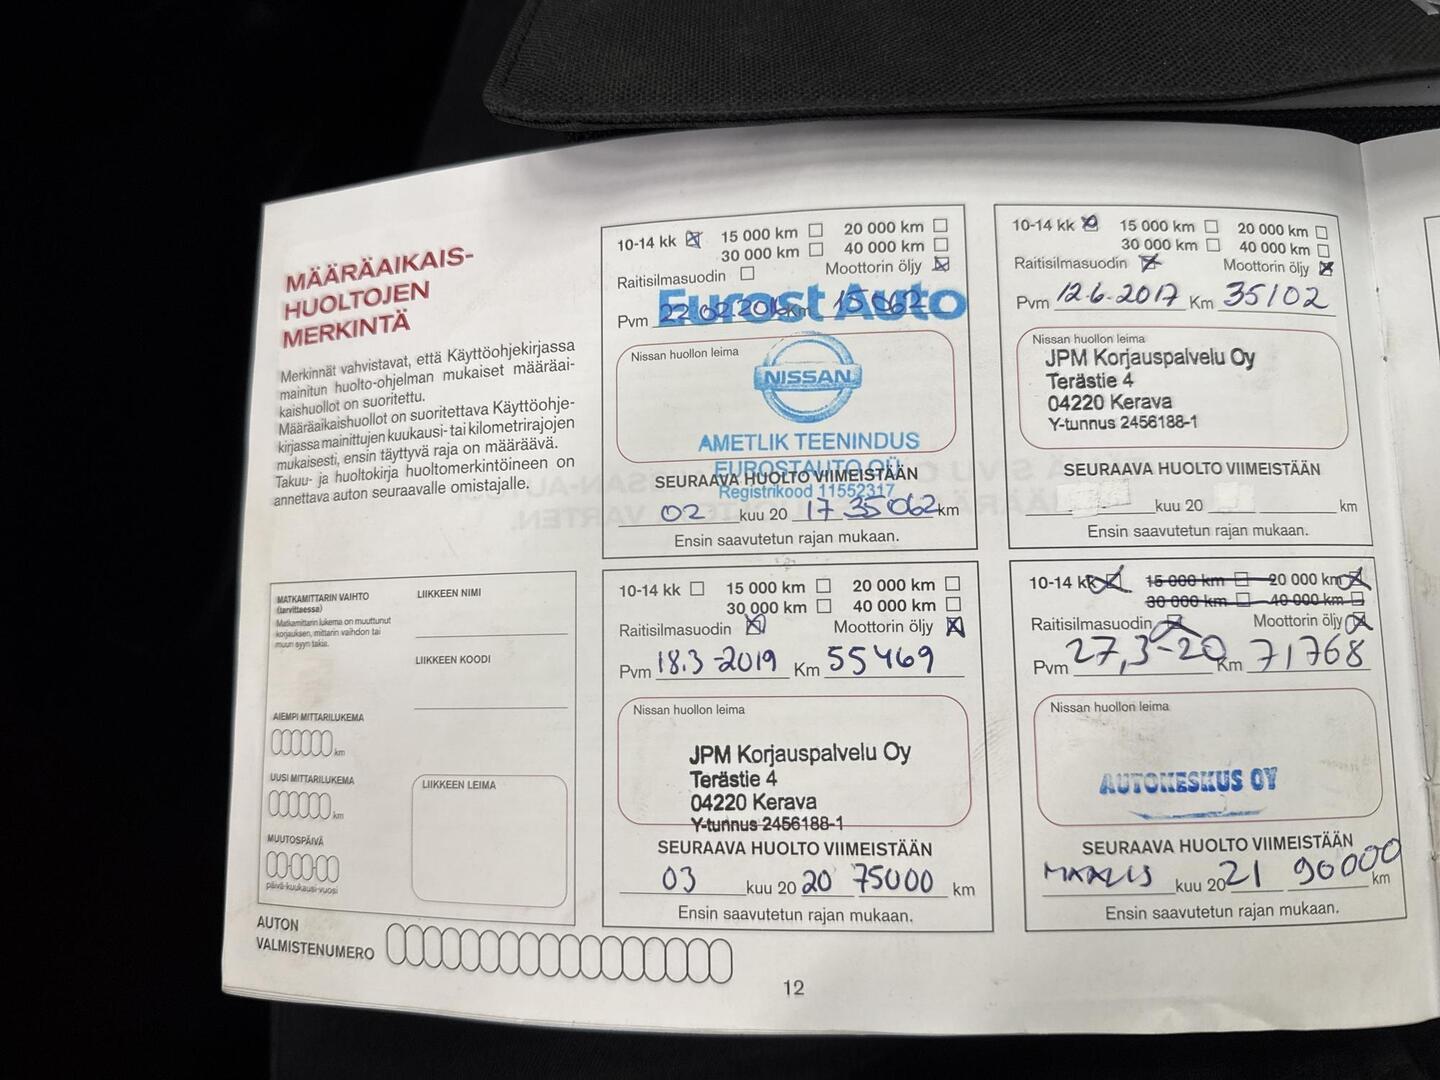 MÄÄRÄAIKAIS-
HUOLTOJEN
MERKINTÄ
Merkinnät vahvistavat, että Käyttöohjekirjassa
mainitun huolto-ohjelman mukaiset määräai-
kaishuollot on suoritettu.
Määräaikaishuollot on suoritettava Käyttöohje-
kirjassa mainittujen kuukausi- tai kilometrirajojen
mukaisesti, ensin täyttyvä raja on määräävä.
Takuu- ja huoltokirja huoltomerkintöineen on
annettava auton seuraavalle omistajalle.
MATKAMITTARIN VAIHTO
(tarvittaessa)
Matkamittarin lukema on muuttunut
korjauksen, mittarin vaihdon tai
muun syyn takia.
AIEMPI MITTARILUKEMA
km
UUSI MITTARILUKEMA
km
MUUTOSPÄIVÄ
päivä-kuukausi-vuosi
LIIKKEEN NIMI
LIIKKEEN KOODI
LIIKKEEN LEIMA
AUTON
VALMISTENUMERO
10-14 kk 15 000 km 20 000 km
30 000 km 40 000 km
Raitisilmasuodin Moottorin öljy
Eurost Auto
Pvm 22.02.2016 Km 15062
Nissan huollon leima
NISSAN
AMETLIK TEENINDUS
EUROSTAUTO OÜ
SEURAAVA HUOLTO VIIMEISTÄÄN
Registrikood 11552317
02 kuu 20 17 35062 km
Ensin saavutetun rajan mukaan.
10-14 kk 15 000 km 20 000 km
30 000 km 40 000 km
Raitisilmasuodin Moottorin öljy
Pvm 12.6.2017 Km 35102
Nissan huollon leima
JPM Korjauspalvelu Oy
Terästie 4
04220 Kerava
Y-tunnus 2456188-1
SEURAAVA HUOLTO VIIMEISTÄÄN
kuu 20 km
Ensin saavutetun rajan mukaan.
10-14 kk 15 000 km 20 000 km
30 000 km 40 000 km
Raitisilmasuodin Moottorin öljy
Pvm 18.3-2019 Km 55469
Nissan huollon leima
JPM Korjauspalvelu Oy
Terästie 4
04220 Kerava
Y-tunnus 2456188-1
SEURAAVA HUOLTO VIIMEISTÄÄN
03 kuu 20 20 75000 km
Ensin saavutetun rajan mukaan.
10-14 kk 15 000 km 20 000 km
30 000 km 40 000 km
Raitisilmasuodin Moottorin öljy
Pvm 27,3-20 Km 71768
Nissan huollon leima
AUTOKESKUS OY
SEURAAVA HUOLTO VIIMEISTÄÄN
MAALIS kuu 20 21 90000 km
Ensin saavutetun rajan mukaan.
12